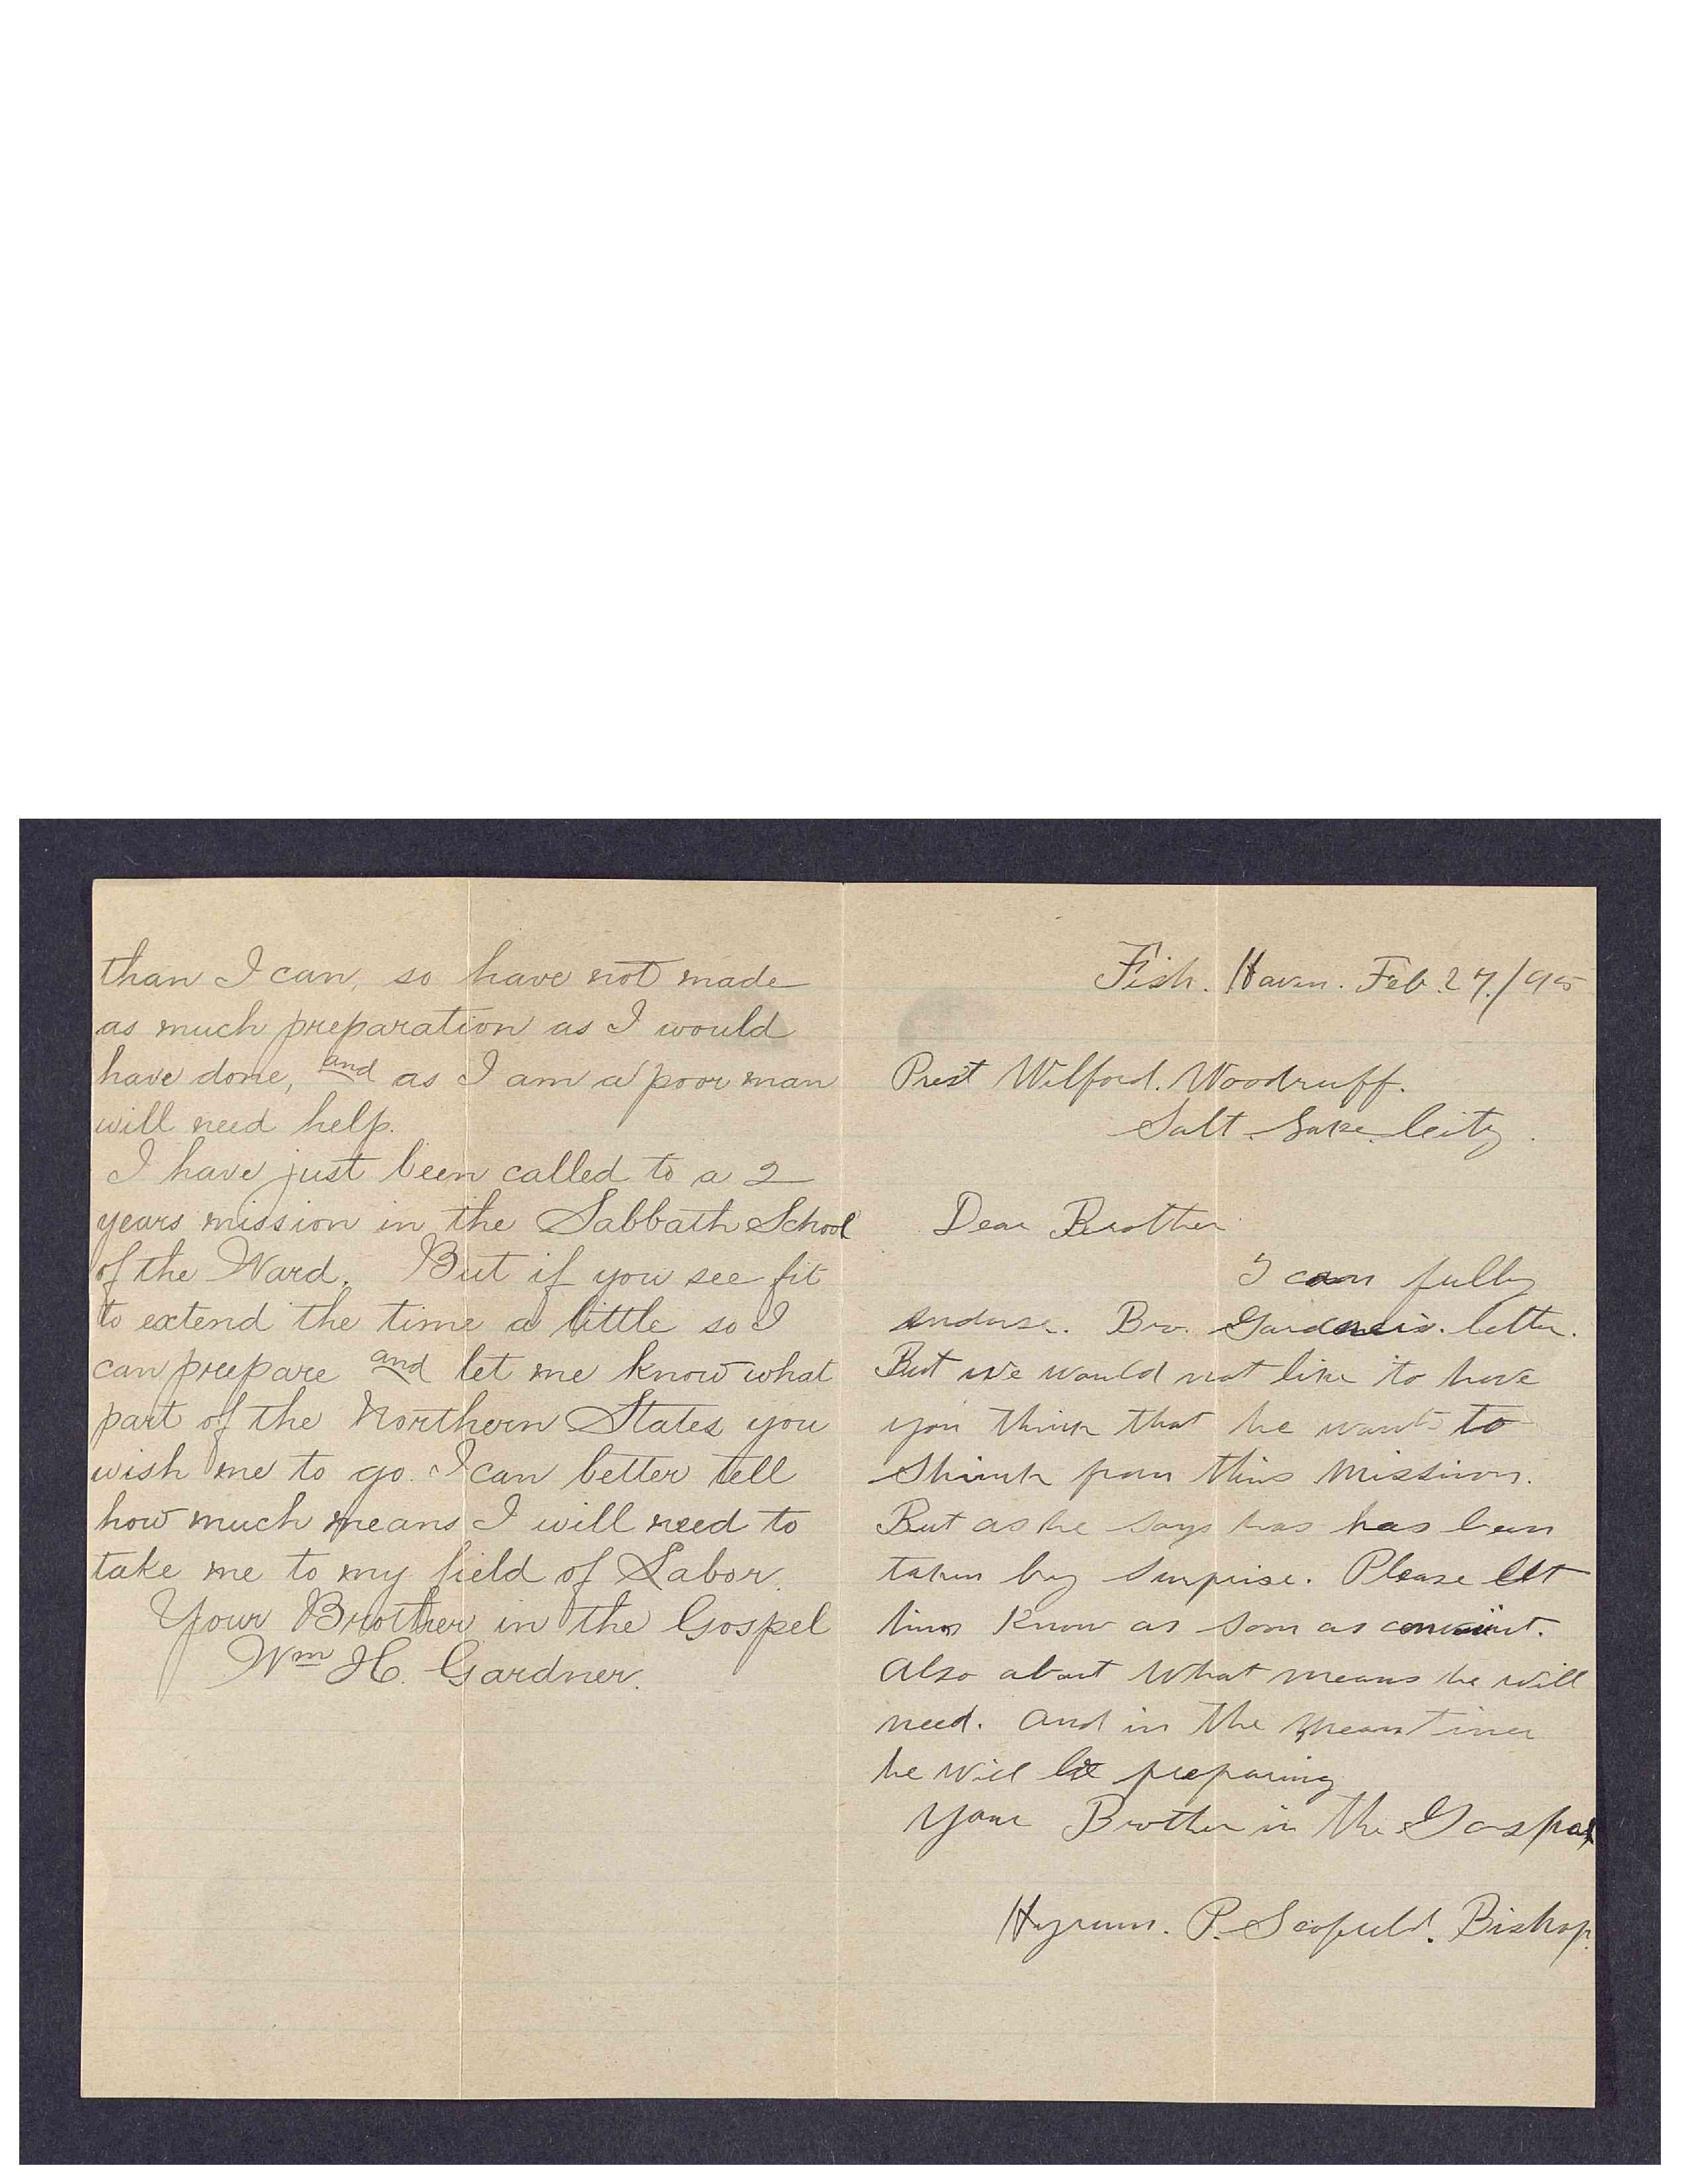 than I can, so have not made
as much preparation as I would
have done, and as I am a poor man
will need help.
I have just been called to a 2
years mission in the Sabbath School
of the Ward. But if you see fit
to extend the time a little so I
can preepare and let me know what
part of the Northern States you
wish me to go. I can better tell
how much means I will need to
take me to my field of Labor.
Your Brother in the Gospel
Wm H. Gardner.
Fish. Haven. Feb. 27./95
Prest Wilford. Woodruff.
Salt. Lake. City.
Dear Brother
I can fully
endorse. Bro. Gardners. letter.
But we would not like to have
you think that he wants to
Shirnk from this Mission.
But as he says has has been
taken by Surprise. Please let
him Know as soon as
Also about What means he will
need. And in the Mean time
he Will be preparing
Your Brother in the Gospel
Hyrum. P. Scofield. Bishop.